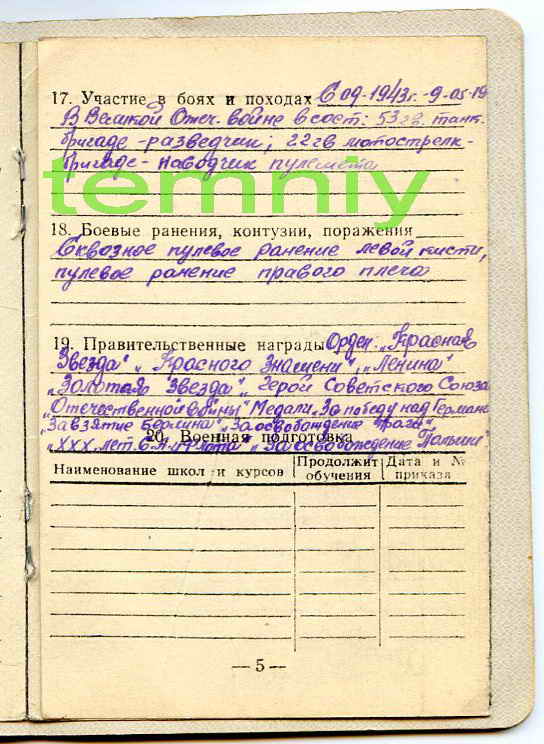 17. Участие в боях и походах С 09-1943г.-9-05-19
В Великой Отеч. войне в сост: 53 гв. танк.
бригаде - разведчик; 22 гв мотострелк-
бригаде - наводчик пулемета
temniy
18. Боевые ранения, контузии, поражения
Сквозное пулевое ранение левой кисти,
пулевое ранение правого плеча
19. Правительственные награды Орден: „Красная
Звезда" „Красного Знамени", „Ленина"
„Золотая Звезда", Герой Советского Союза
„Отечественной войны" Медали „За победу над Германи
„За взятие Берлина" „За освобождение Праги"
20. Военная подготовка
„XXX лет С.А. и Флота" „За освобождение Польши"
Наименование школ и курсов Продолжит обучения Дата и № приказа
— 5 —